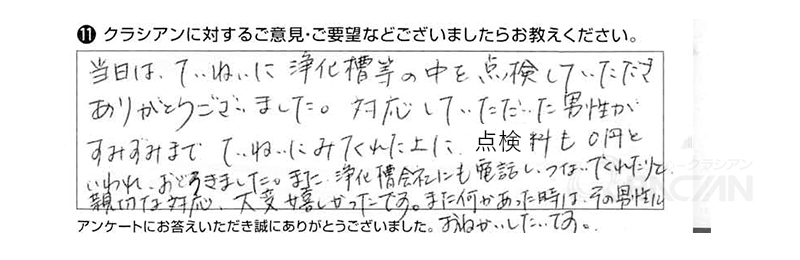 ⓫ クラシアンに対するご意見・ご要望などございましたらお教えください。
当日は、ていねいに浄化槽等の中を点検していただき
ありがとうございました。対応していただいた男性が
すみずみまでていねいにみてくれた上に、点検料も0円と
いわれ、おどろきました。また、浄化槽会社にも電話し、つないでくれたりと
親切な対応、大変嬉しかったです。また何かあった時は、その男性に
おねがいしたいです。
アンケートにお答えいただき誠にありがとうございました。
クラシアン